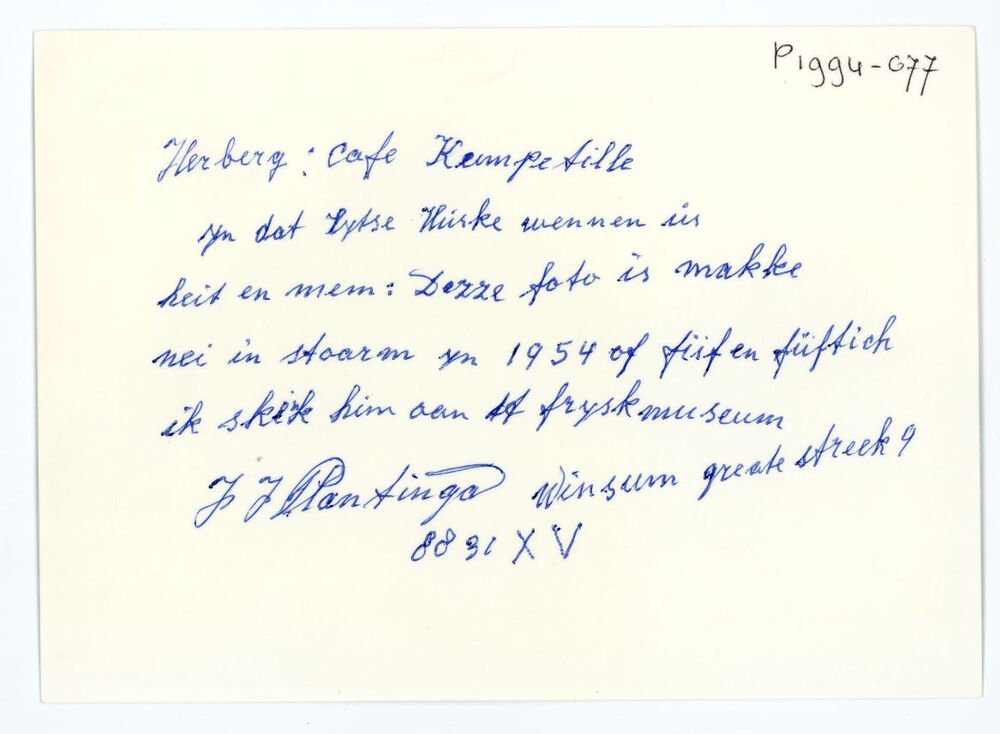 P1994-077
Herberg: Cafe Kempetille
yn dat Lytse Húske wennen ús
heit en mem: Dezze foto is makke
nei in stoarm yn 1954 of fiif en füftich
ik skink him oan it frysk museum
J J Plantinga Winsum greate streek 9
8831 XV